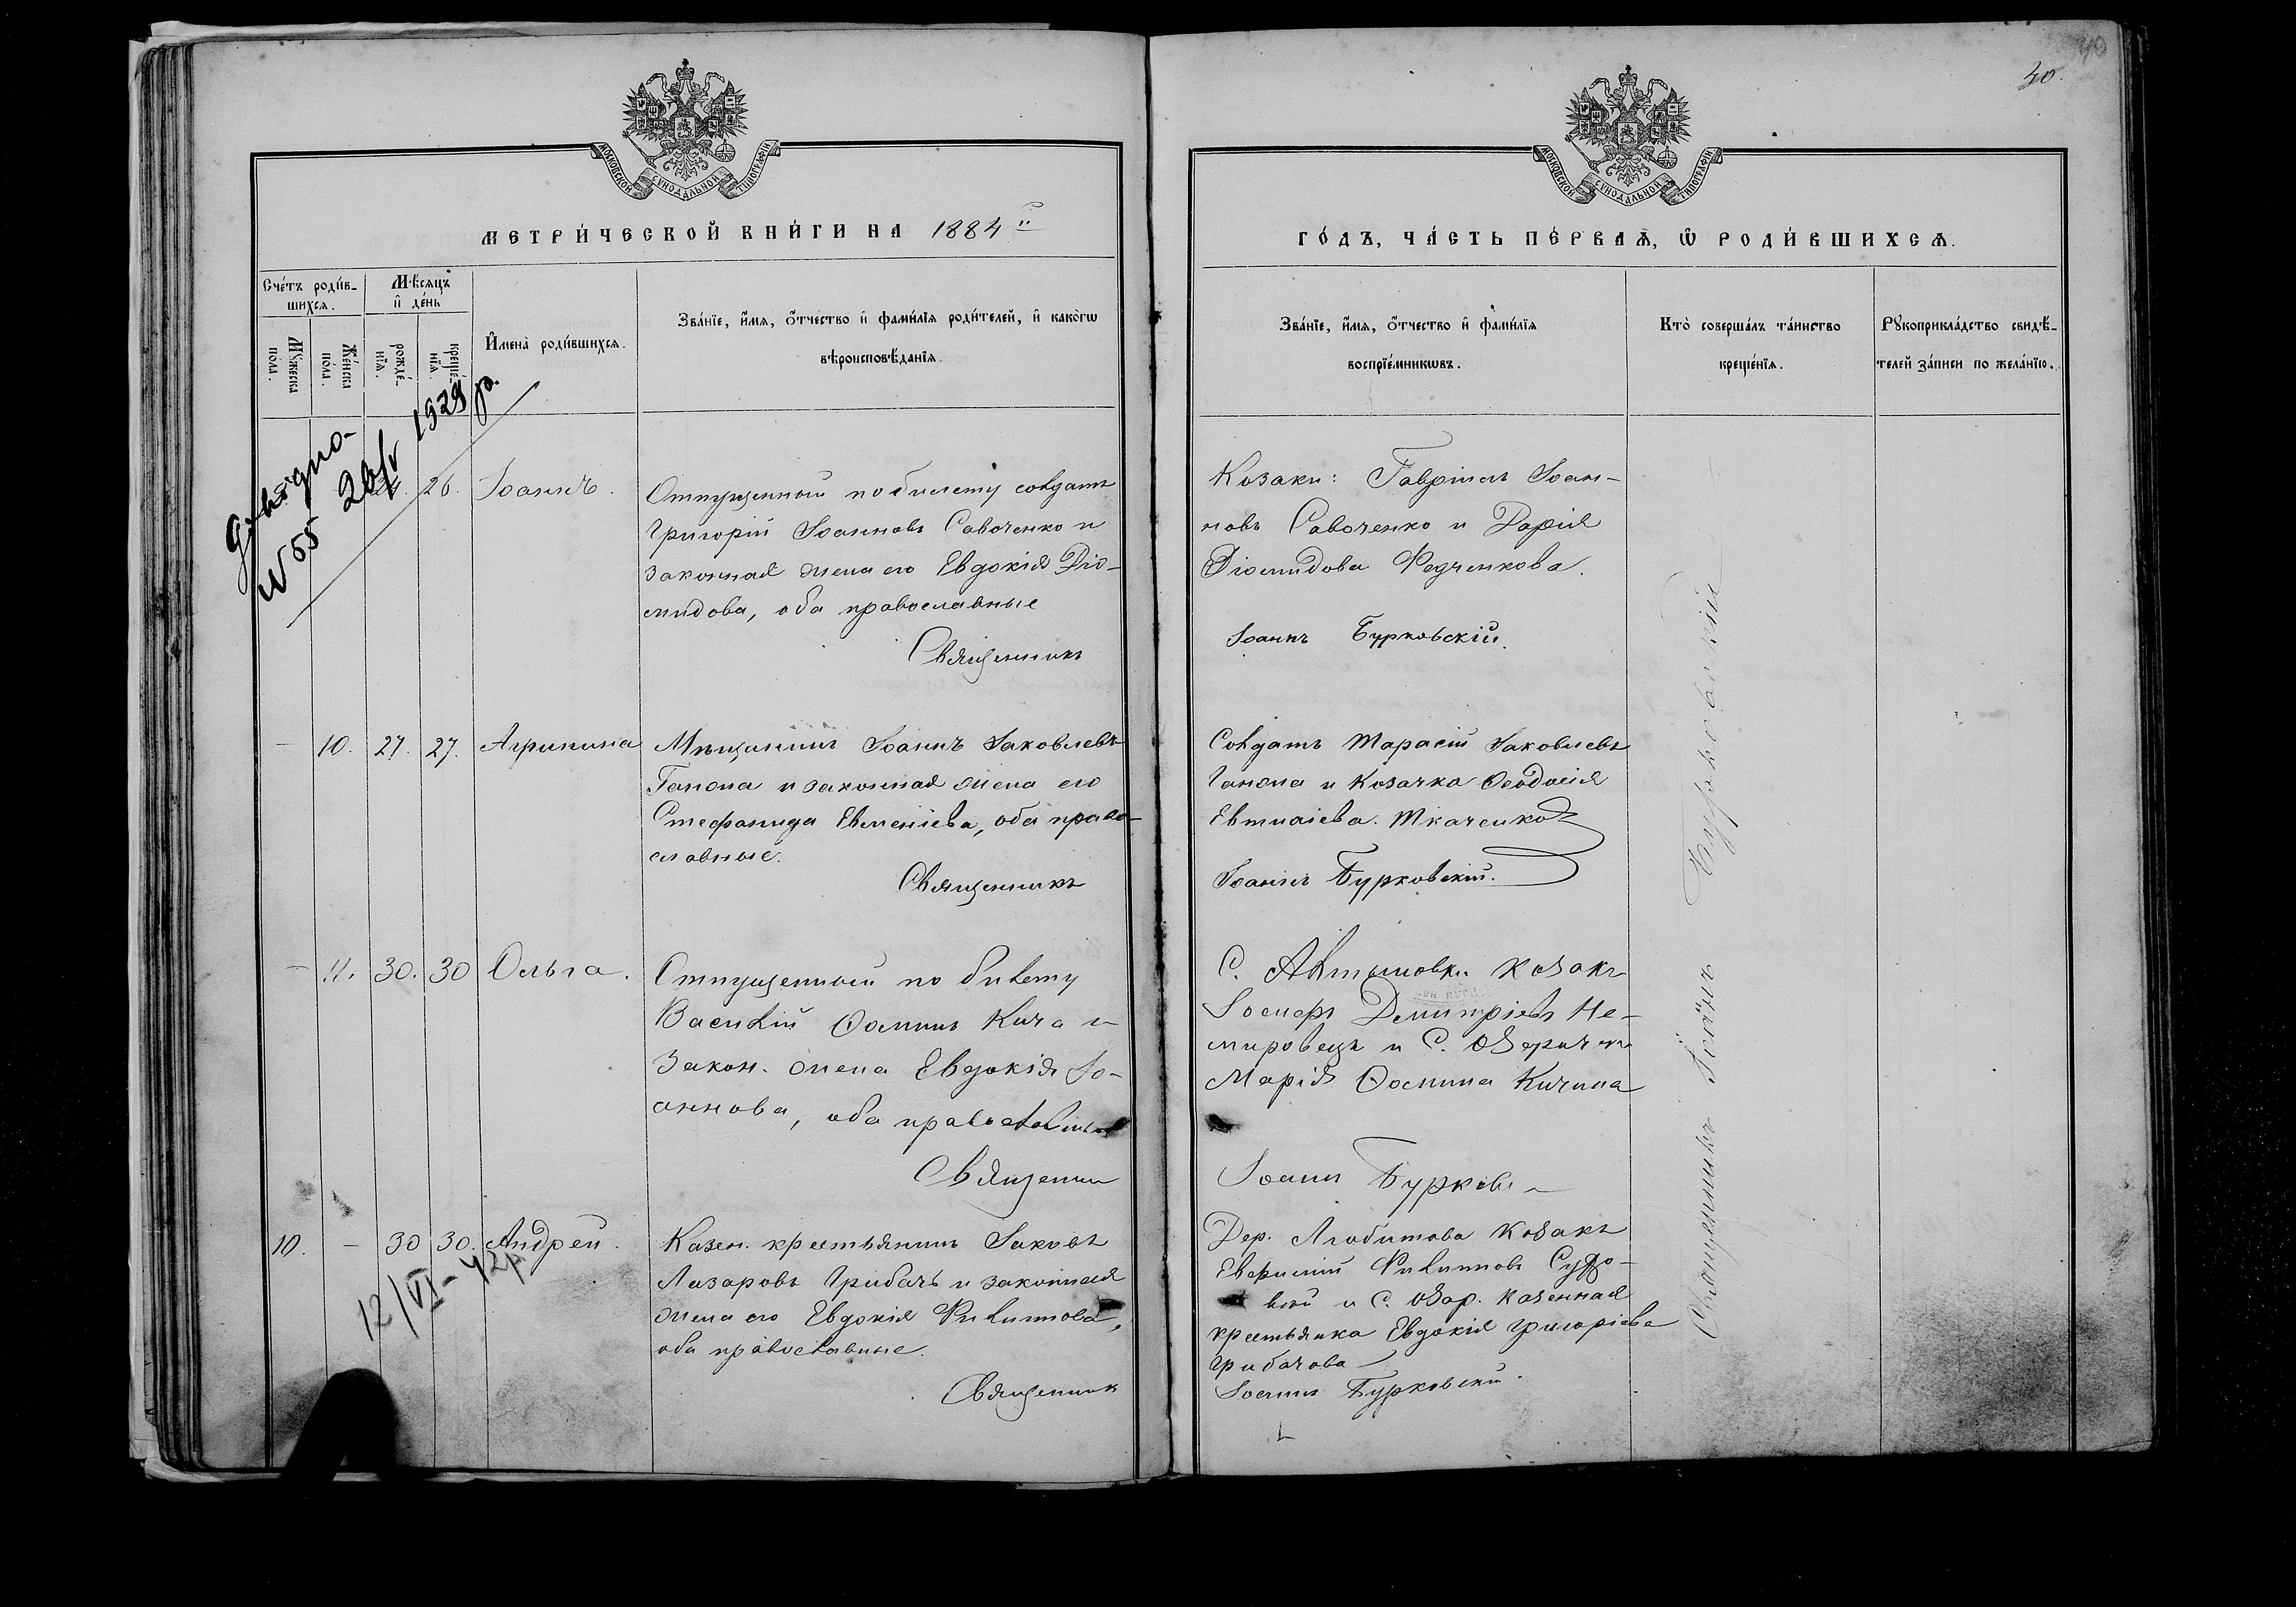 40.
МОСКОВСКОЙ СУНОДАЛЬНОЙ ТИПОГРАФІИ
МЕТРИ́ЧЕСКОЙ КНИ́ГИ НА 1884й
Сче́тъ роди́в-
шихся.
Мѣ́сяцъ
и҆ де́нь
Мꙋ́жеска
по́ла.
Же́нска
по́ла.
рожде́-
нїѧ.
креще́-
нїѧ.
И҆мена̀ роди́вшихся.
Зва́нїе, и҆́мя, ѻ҆́тчество и҆ фами́лїя роди́телей, и҆ како́гѡ
вѣроисповѣ́данїя.
1929 р.
№ 55 20/V
26. Іоаннъ.
Отпущенный по билету солдатъ
Григорій Іоанновъ Савоченко и
законная жена его Евдокія Діо-
мидова, оба православные
Священникъ
— 10. 27. 27. Агрипина
Мѣщанинъ Іоаннъ Іаковлевъ
Гапона и законная жена его
Стефанида Евменіева, оба право-
славные.
Священникъ
— 11. 30. 30 Ольга.
Отпущенный по билету
Василій Ѳоминъ Кича и
Закон. жена Евдокія Іо-
аннова, оба православные
Священник
10. — 30 30. Андрей.
12/VI – 42р
Казен. крестьянинъ Іаковъ
Лазаровъ Грибачъ и законная
жена его Евдокія Филиппова,
оба православные.
Священник
МОСКОВСКОЙ СУНОДАЛЬНОЙ ТИПОГРАФІИ
ГО́ДЪ, ЧА́СТЬ ПЕ́РВАЯ, Ѡ҆ РОДИ́ВШИХСЯ.
Зва́нїе, и҆́мя, ѻ҆́тчество и҆ фами́лїя
воспрїе́мникѡвъ.
Кто̀ соверша́лъ та́инство
креще́нїя.
Рꙋкоприкла́дство свидѣ́-
телей за́писи по жела́нїю.
Козаки: Гавріилъ Іоан-
новъ Савоченко и Дарія
Діомидова Федченкова.
Іоаннъ Бурковскій.
Солдатъ Тарасій Іаковлевъ
Гапона и Козачка Ѳеодосія
Ткаченков
Іоаннъ Бурковскій.
С. козакъ
Іосифъ Димитріевъ Не-
мировецъ и С.
Марія Ѳомина Кичина
Іоанн Бурков
Дер. Любитова козакъ
Евфимій Филиповъ
и С. Озар. казенная
крестьянка Евдокія Григоріева
Грибачова
Іоаннъ Бурковскій.
Священникъ Іоаннъ Бурковскій